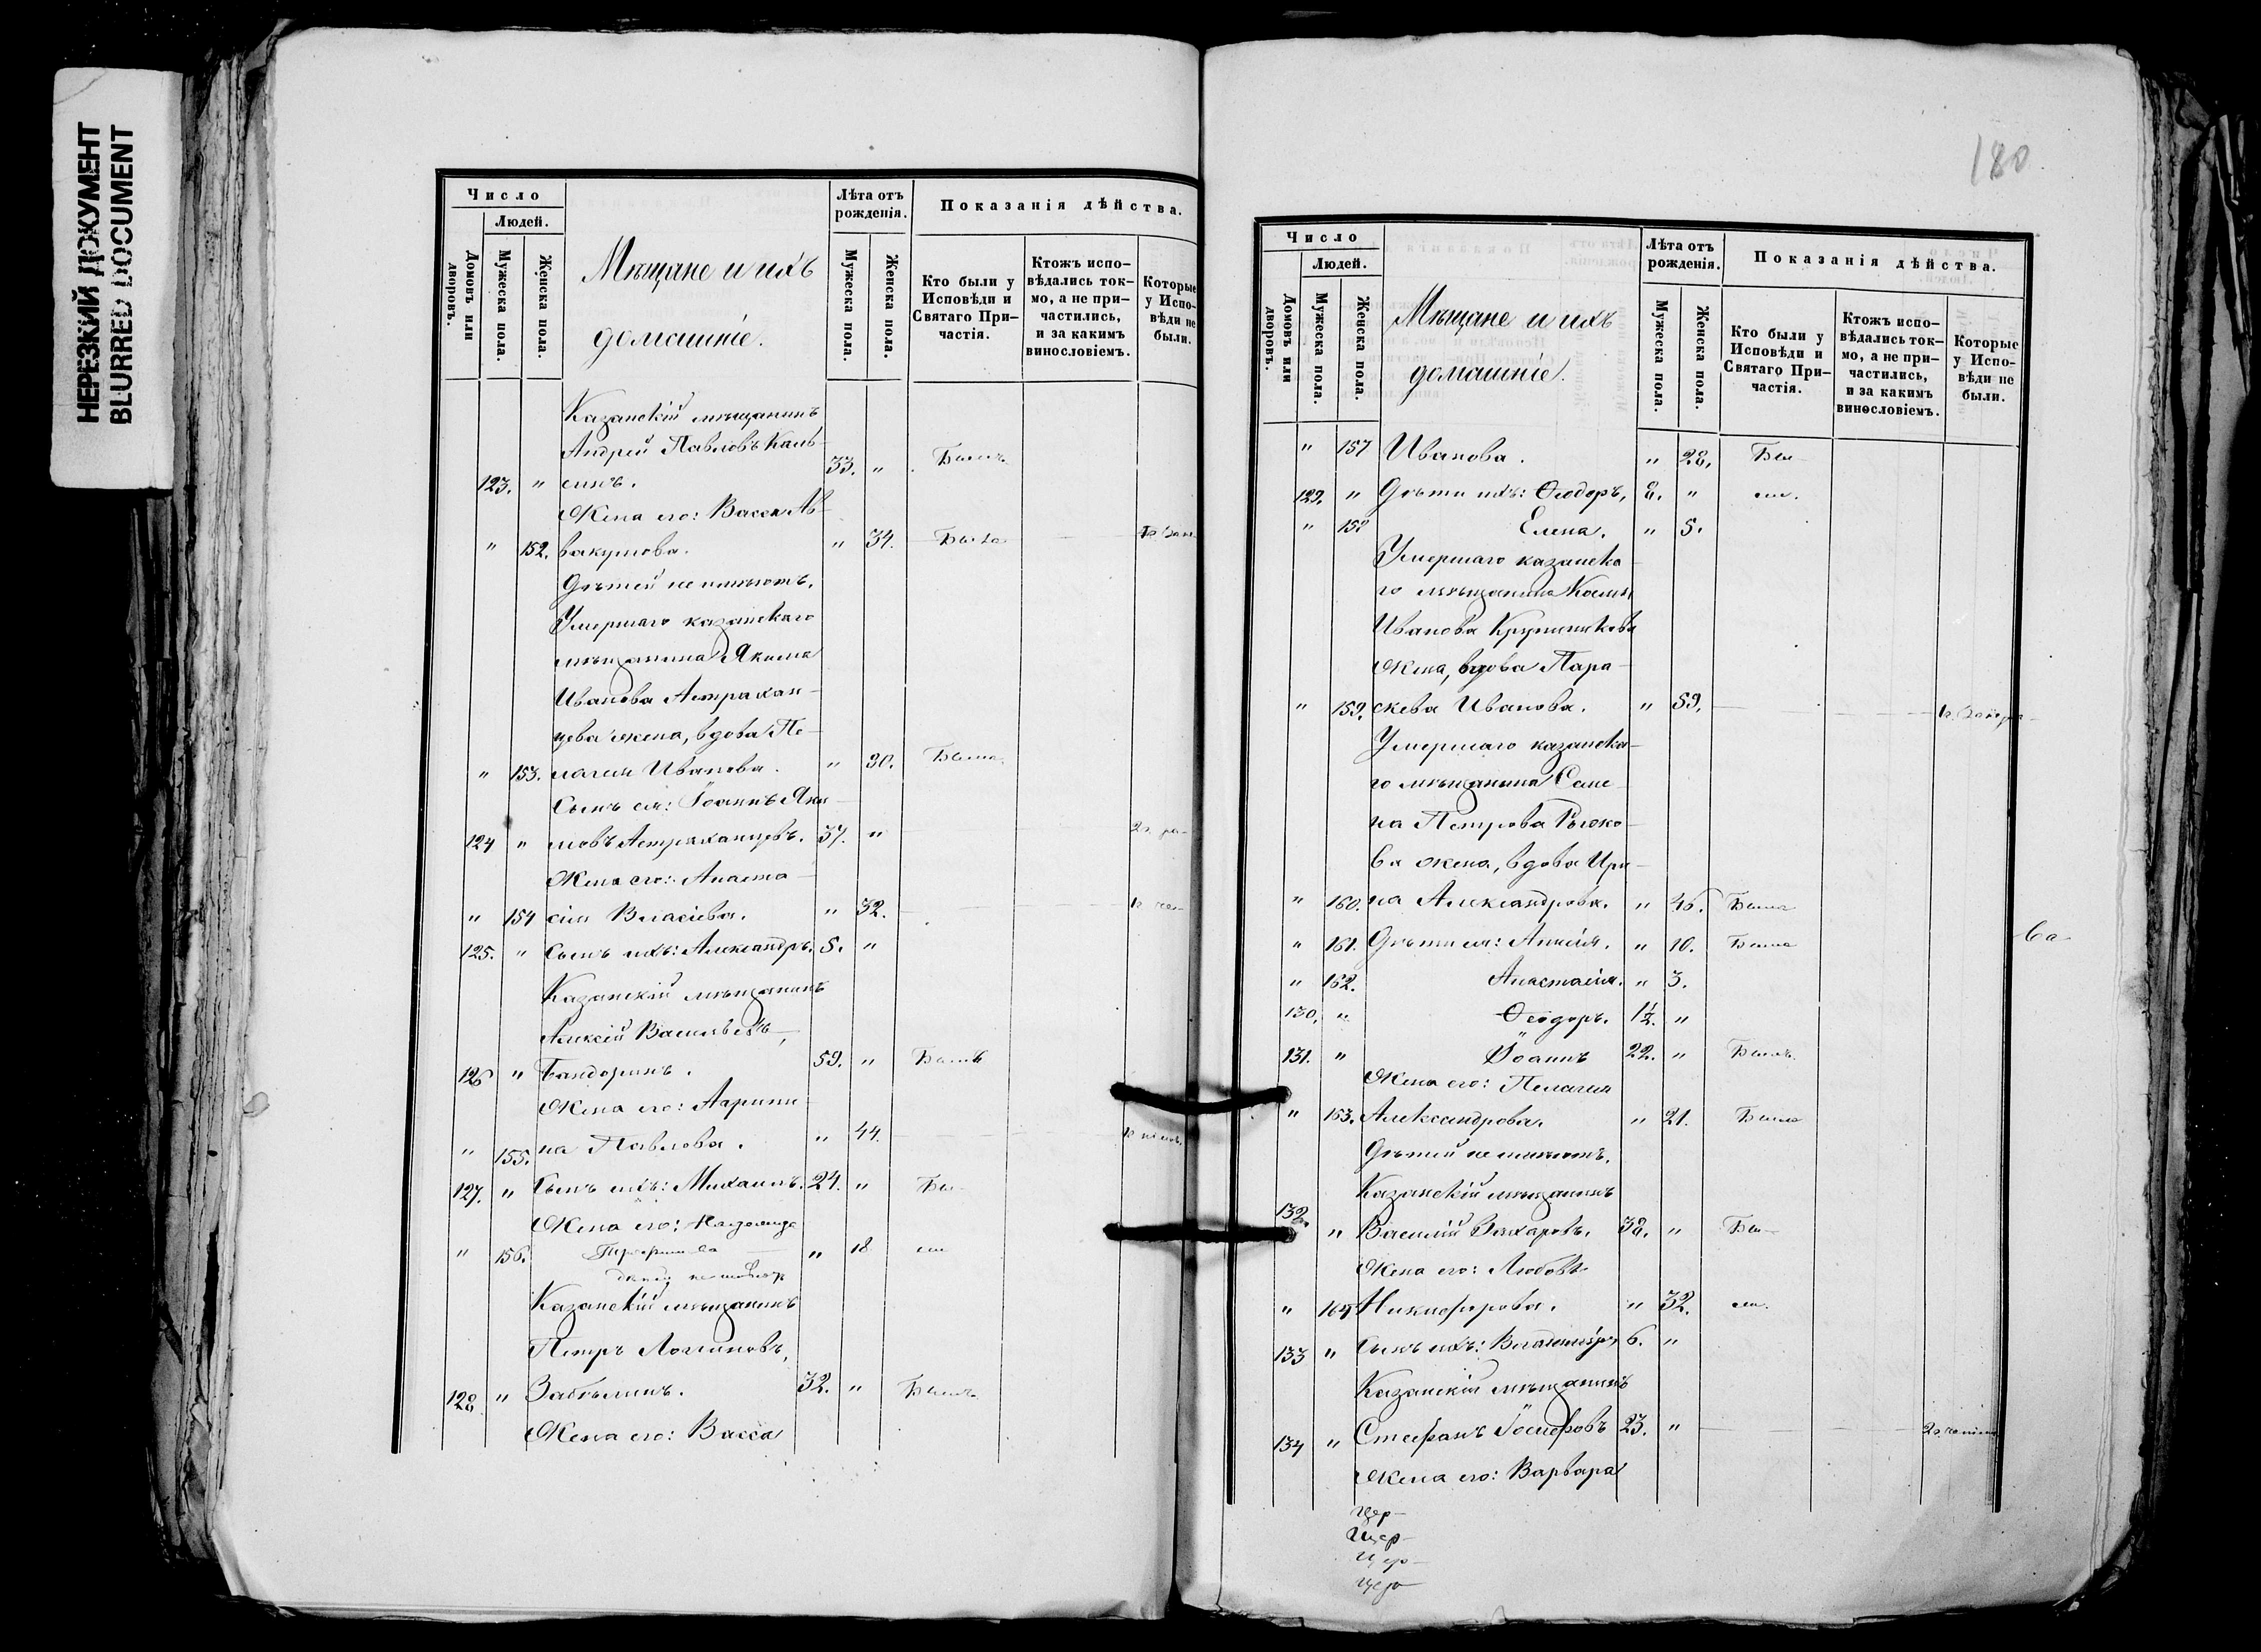 НЕРЕЗКИЙ ДОКУМЕНТ
BLURRED DOCUMENT
Число
Людей.
Домовъ или дворовъ.
Мужеска пола.
Женска пола.
Мѣщане и ихъ
домашніе.
Лѣта отъ рожденія.
Мужеска пола.
Женска пола.
Показанія дѣйства.
Кто были у Исповѣди и Святаго При-частія.
Ктожъ испо-вѣдались ток-мо, а не при-частились, и за какимъ винословіемъ.
Которые у Испо-вѣди не были.
Казанскій мѣщанинъ
Андрей Павловъ Каль-
123. " синъ. 33. " Былъ
Жена его: Васса Ав-
" 152. вакумова. " 34. Была
Дѣтей не имѣютъ.
Умершаго казанскаго
мѣщанина Якима
Иванова Астрахан-
цева жена, вдова Пе-
" 153. лагия Иванова. " 30. Была
Сынъ ея: Іоаннъ Яки-
124 " мовъ Астраханцевъ. 37. "
Жена его: Анаста-
" 154 сія Власіева. " 32.
125. " Сынъ ихъ: Александръ. 5. "
Казанскій мѣщанинъ
Алексій Васильевъ,
126 " Бандоринъ. 59. " Былъ
Жена его:
" 155. на Павлова. " 44.
127. " Сынъ ихъ: Михаилъ. 24. " Бы-
Жена его:
" 156. " 18 ли
Казанскій мѣщанинъ
Петръ Логиновъ,
128 " Забѣлинъ. 32. " Былъ
Жена его: Васса
180
Число
Людей.
Домовъ или дворовъ.
Мужеска пола.
Женска пола.
Мѣщане и ихъ
домашніе.
Лѣта отъ рожденія.
Мужеска пола.
Женска пола.
Показанія дѣйства.
Кто были у Исповѣди и Святаго При-частія.
Ктожъ испо-вѣдались ток-мо, а не при-частились, и за какимъ винословіемъ.
Которые у Испо-вѣди не были.
" 157 Иванова. " 28. Бы-
129. " Дѣти ихъ: Ѳеодоръ, 8. " ли.
" 158 Елена. " 5.
Умершаго казанска-
го мѣщанина Козмы
Иванова Крупеникова
жена, вдова Пара-
" 159. скева Иванова. " 59.
Умершаго казанска-
го мѣщанина Семе-
на Петрова
ва жена, вдова Ири-
" 160. на Александрова. " 46. Была
" 161. Дѣти ея: Анисія. " 10. Была
" 162. Анастасія. " 3.
130. " Ѳеодоръ. 1½. "
131. " Іоаннъ 22. " Былъ
Жена его: Пелагия
" 163. Александрова. " 21. Была
Дѣтей не имѣютъ.
Казанскій мѣщанинъ
132. " Василій Захаровъ. 38. " Бы-
Жена его: Любовь
" 164 Никифорова. " 32. ли.
133 " Сынъ ихъ: Владиміръ 6. "
Казанскій мѣщанинъ
134 " Стефанъ Іосифовъ 23. "
Жена его: Варвара